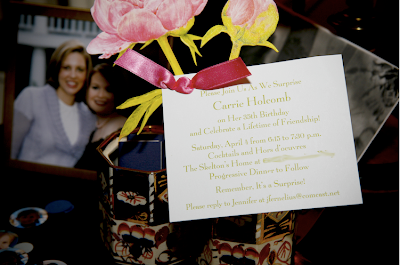 Please Join Us As We Surprise
Carrie Holcomb
on Her 30th Birthday
and Celebrate a Lifetime of Friendship!
Saturday, April 4 from 6:15 to 7:30 p.m.
Cocktails and Hors d'oeuvres
The Shelton's Home at
Progressive Dinner to Follow
Remember, It's a Surprise!
Please reply to Jennifer at